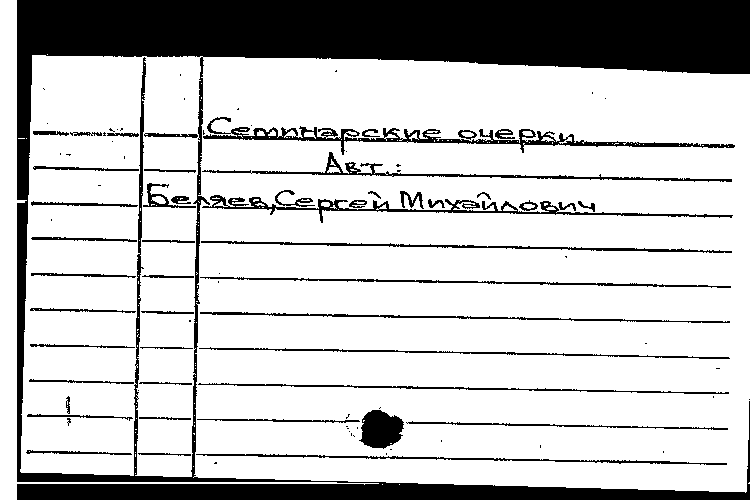 Семинарские очерки
Авт.:
Беляев, Сергей Михайлович